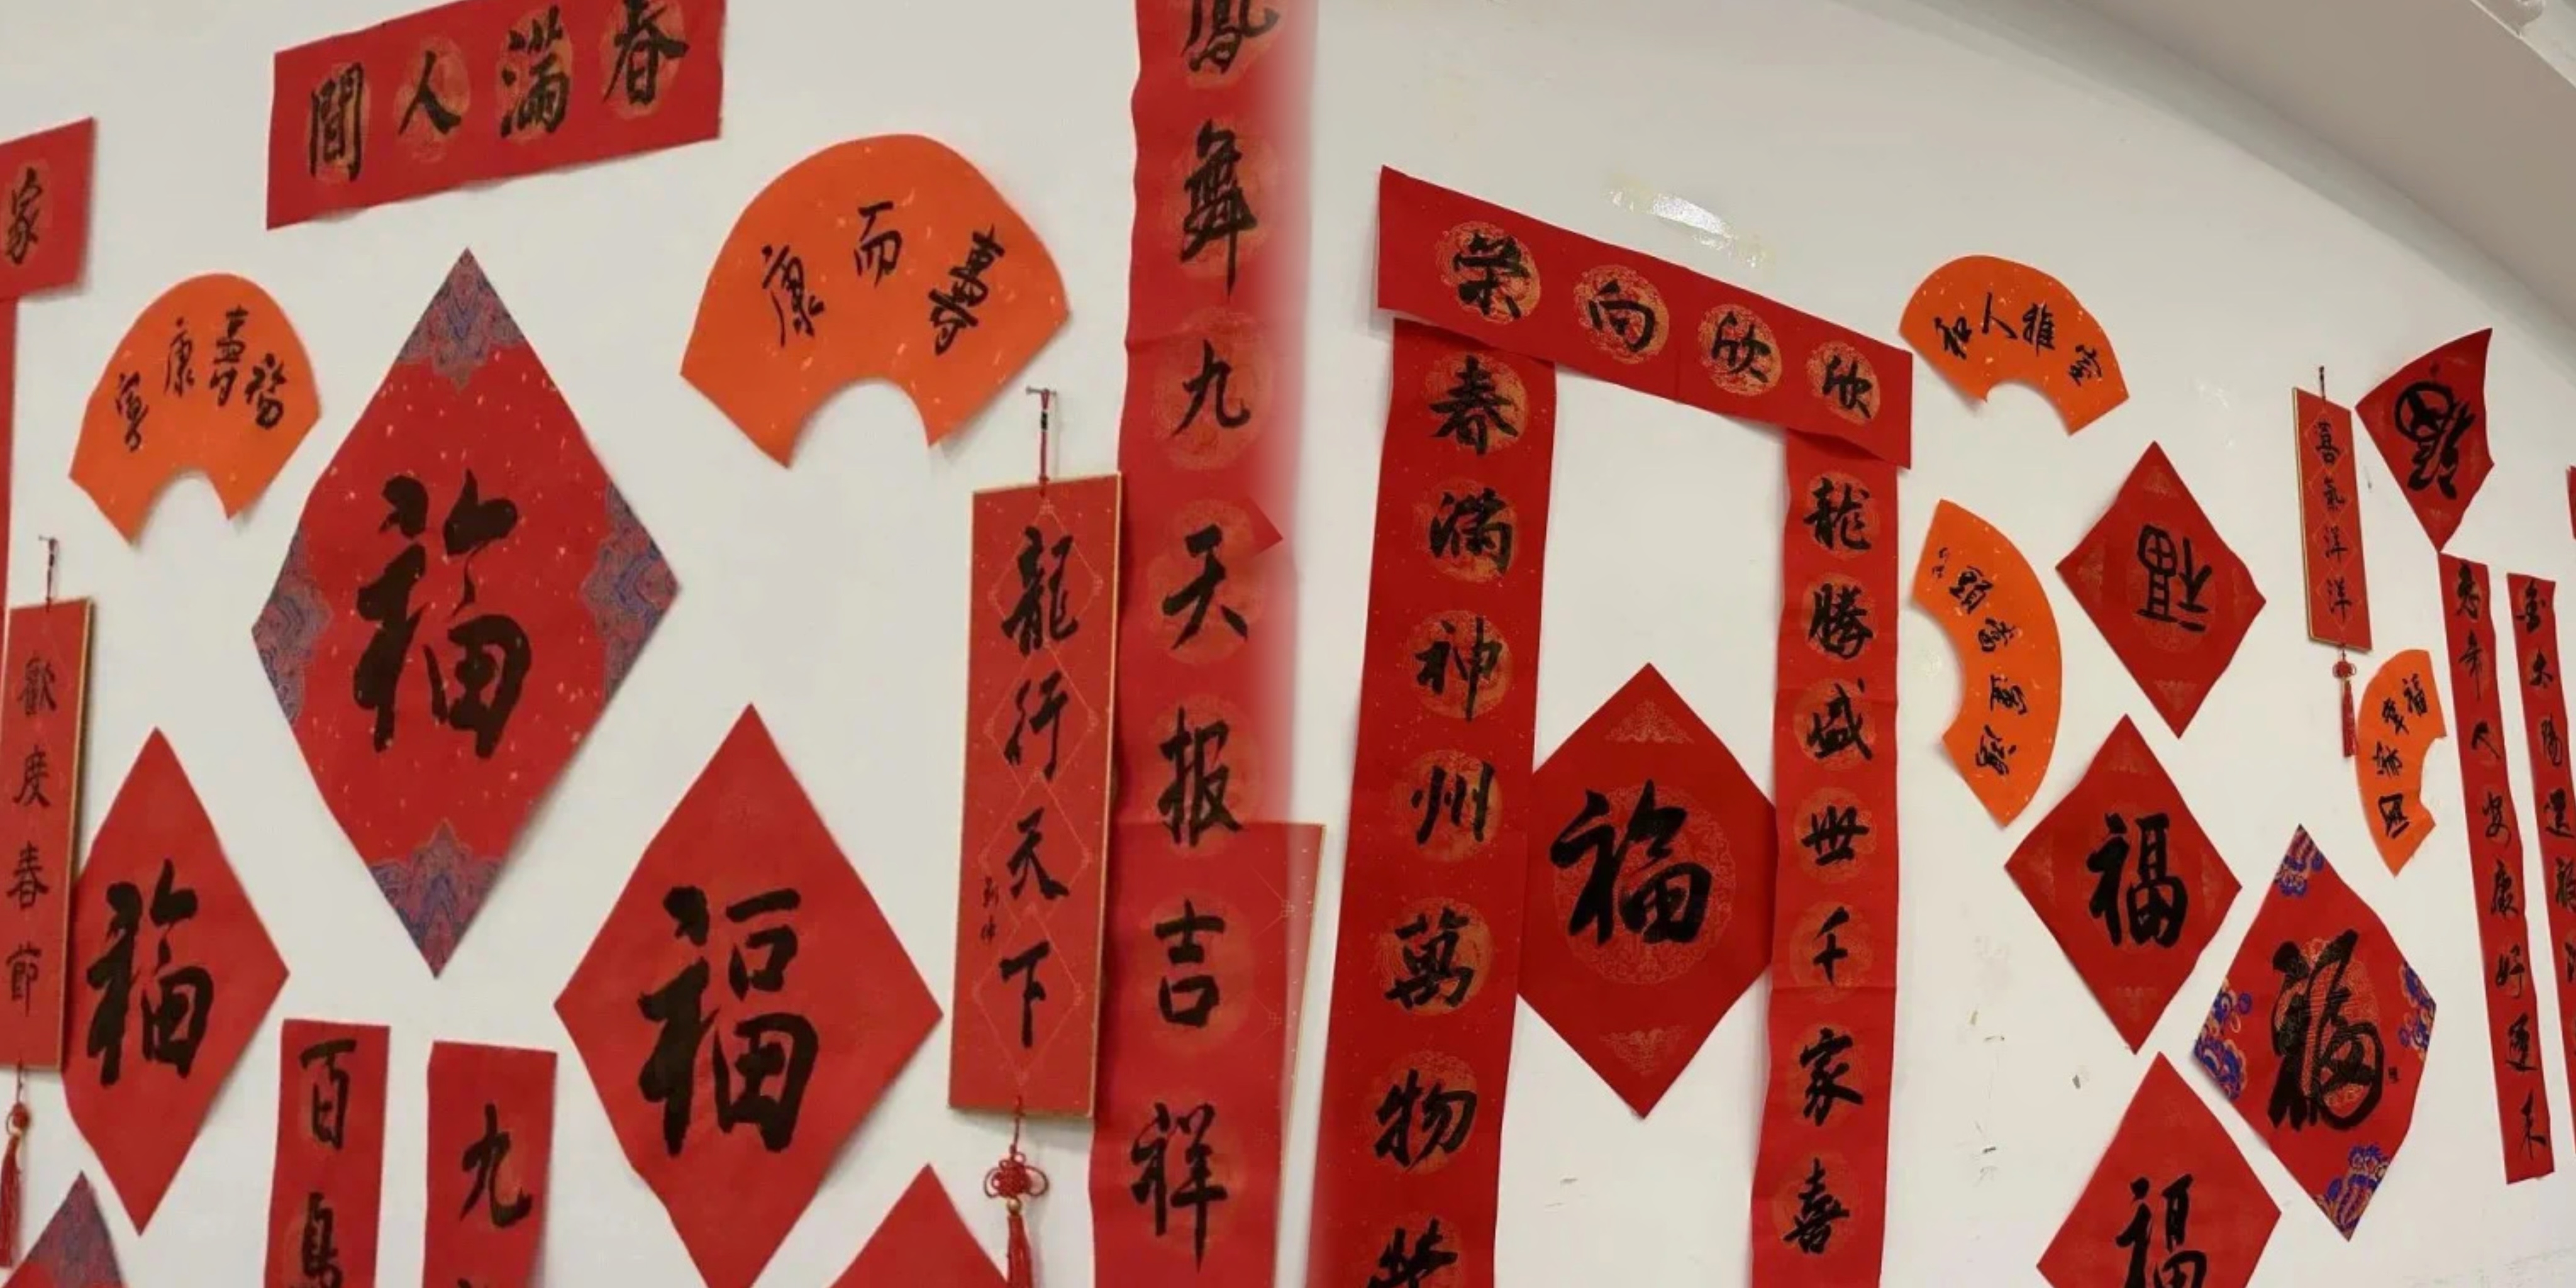 春满人間
家
壽而康
福壽康寧
福
歡度春節
福
福
百鳥
九
龍行天下
鳳舞九天报吉祥
欣欣向荣
春满神州萬物
龍騰盛世千家喜
福
人和
福
福
福
福
喜氣洋洋
福
人安康好運来